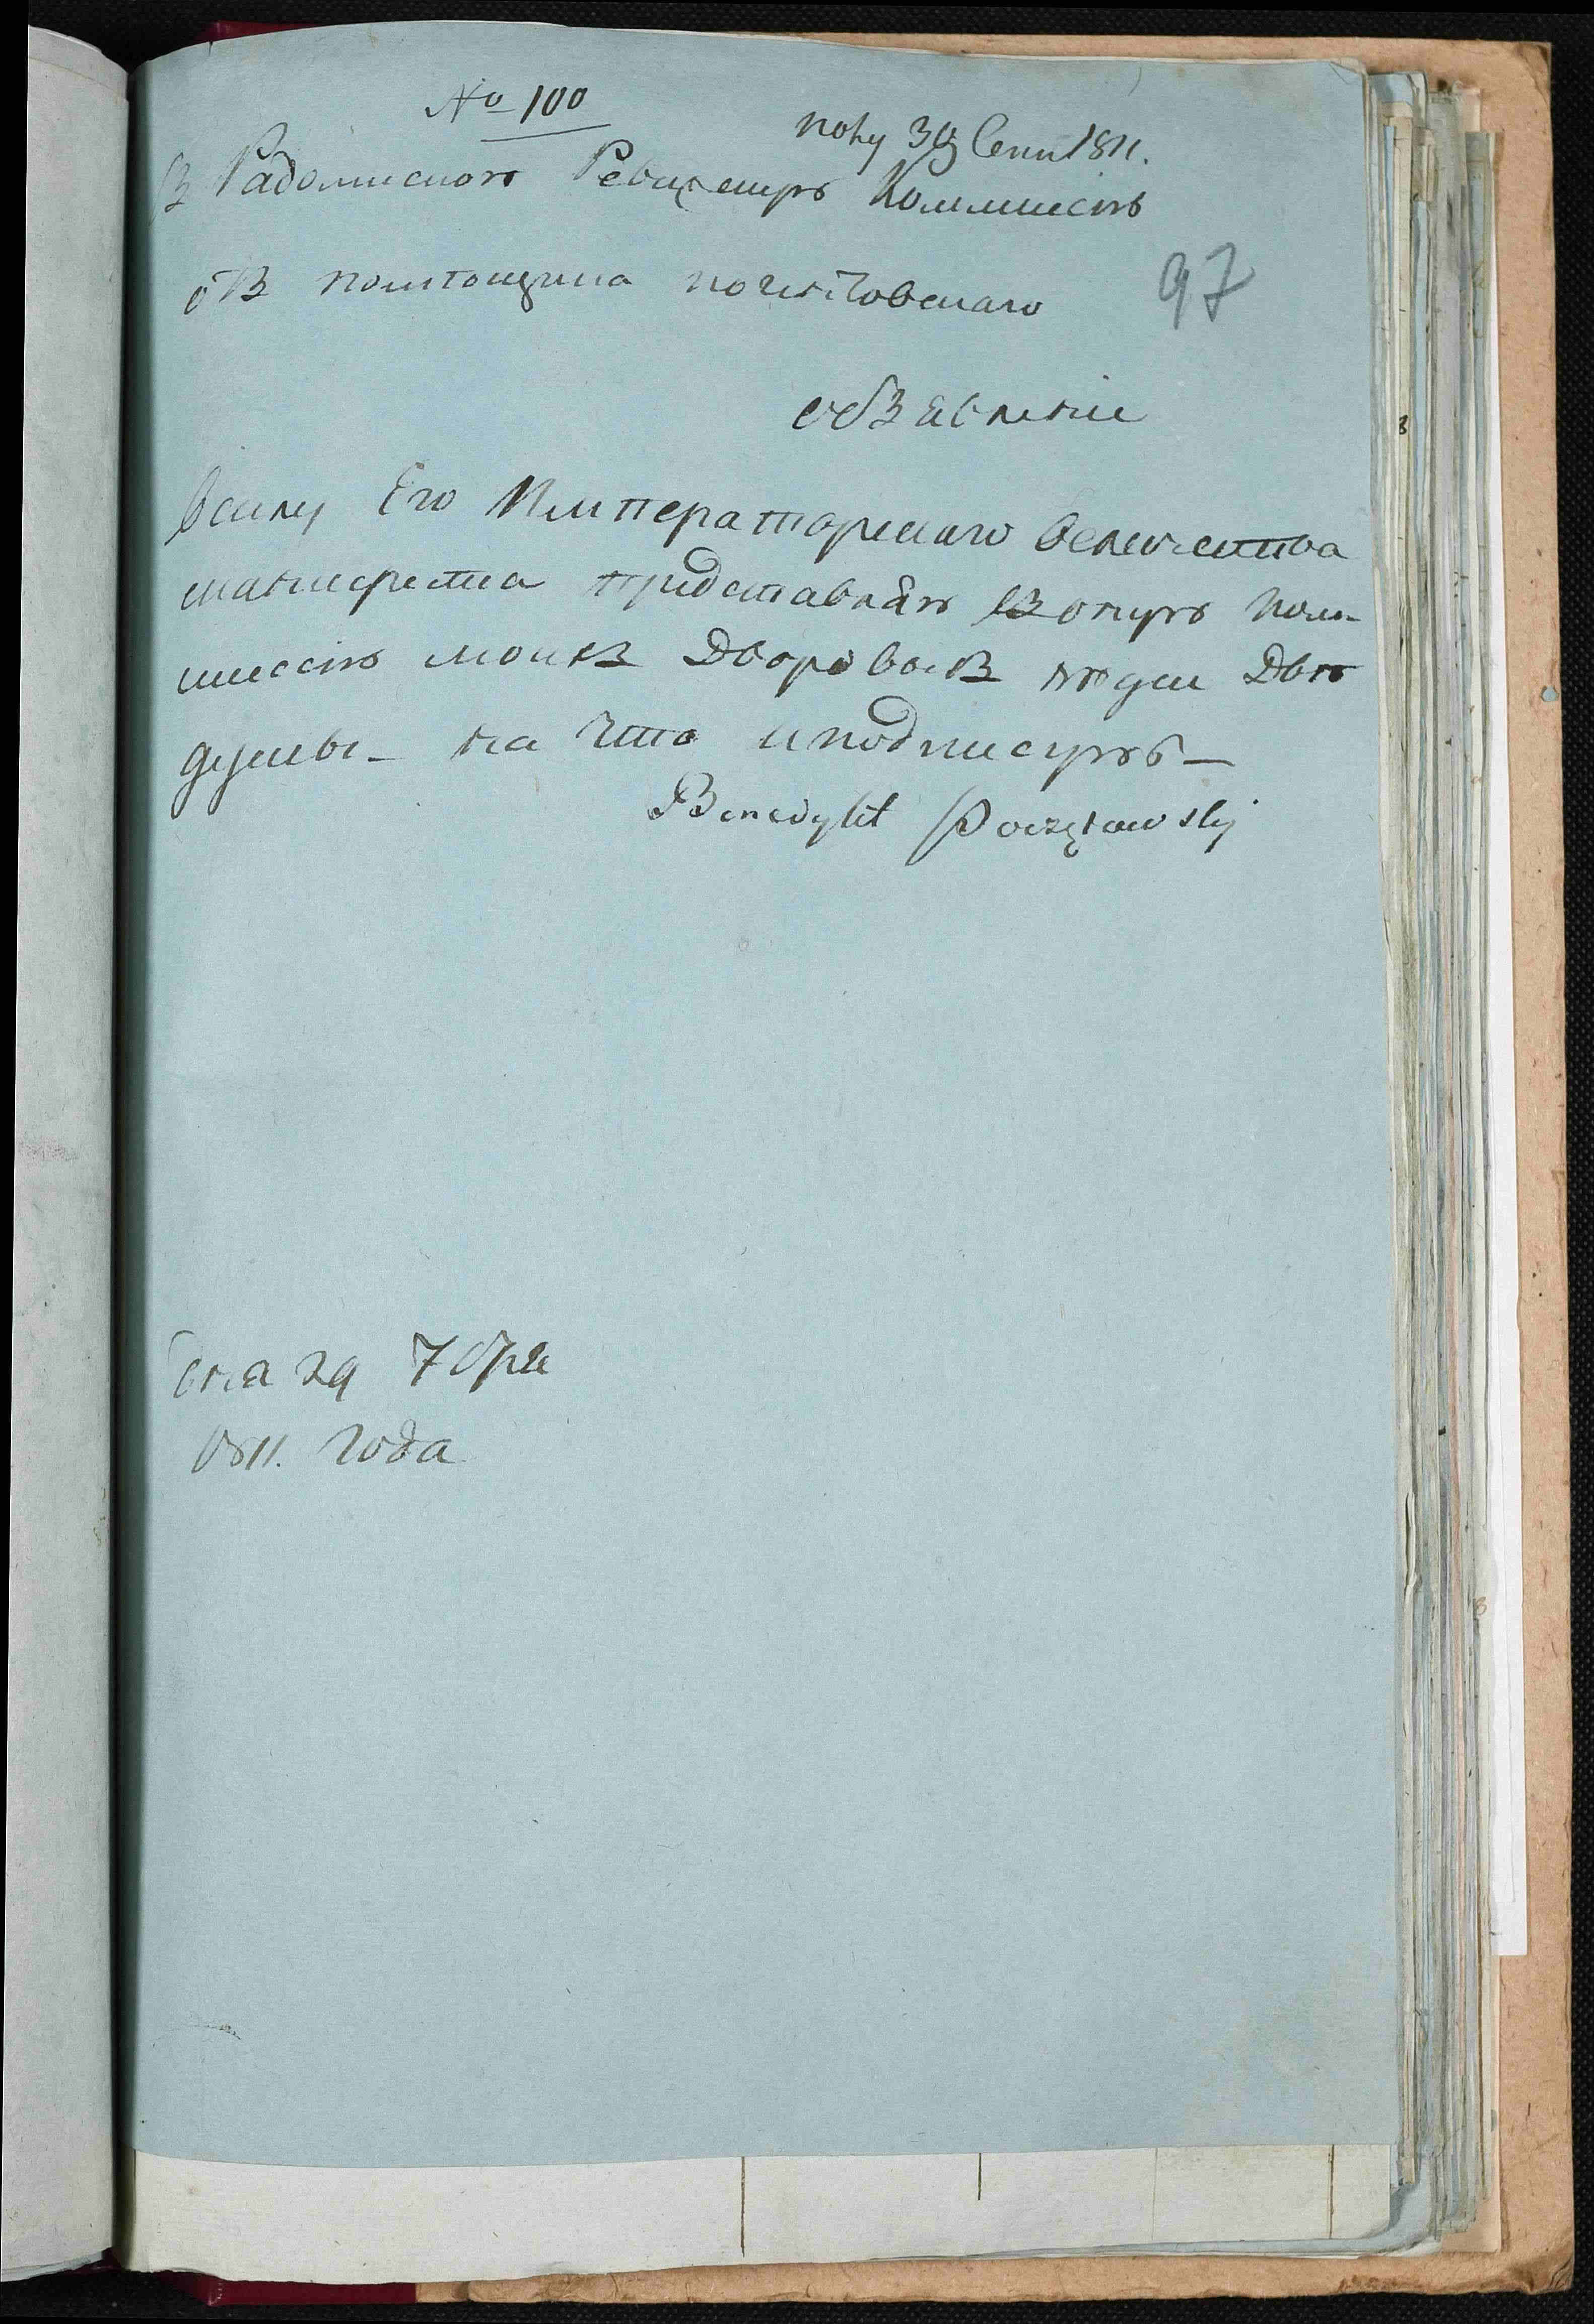 № 100
полу 30 Сент 1811.
В Радомискою Ревизскую Коммисию
97
оВ помтощика почентовскаго
обЗявление
Всилу Его Императорскаго величества
манифеста представляю В оную ком-
миссию моихВ ДворовыхВ людеи Две
души_ на что и подписуюс_
Benedykt Poczętowsky
дня 29 7бря
1811. года